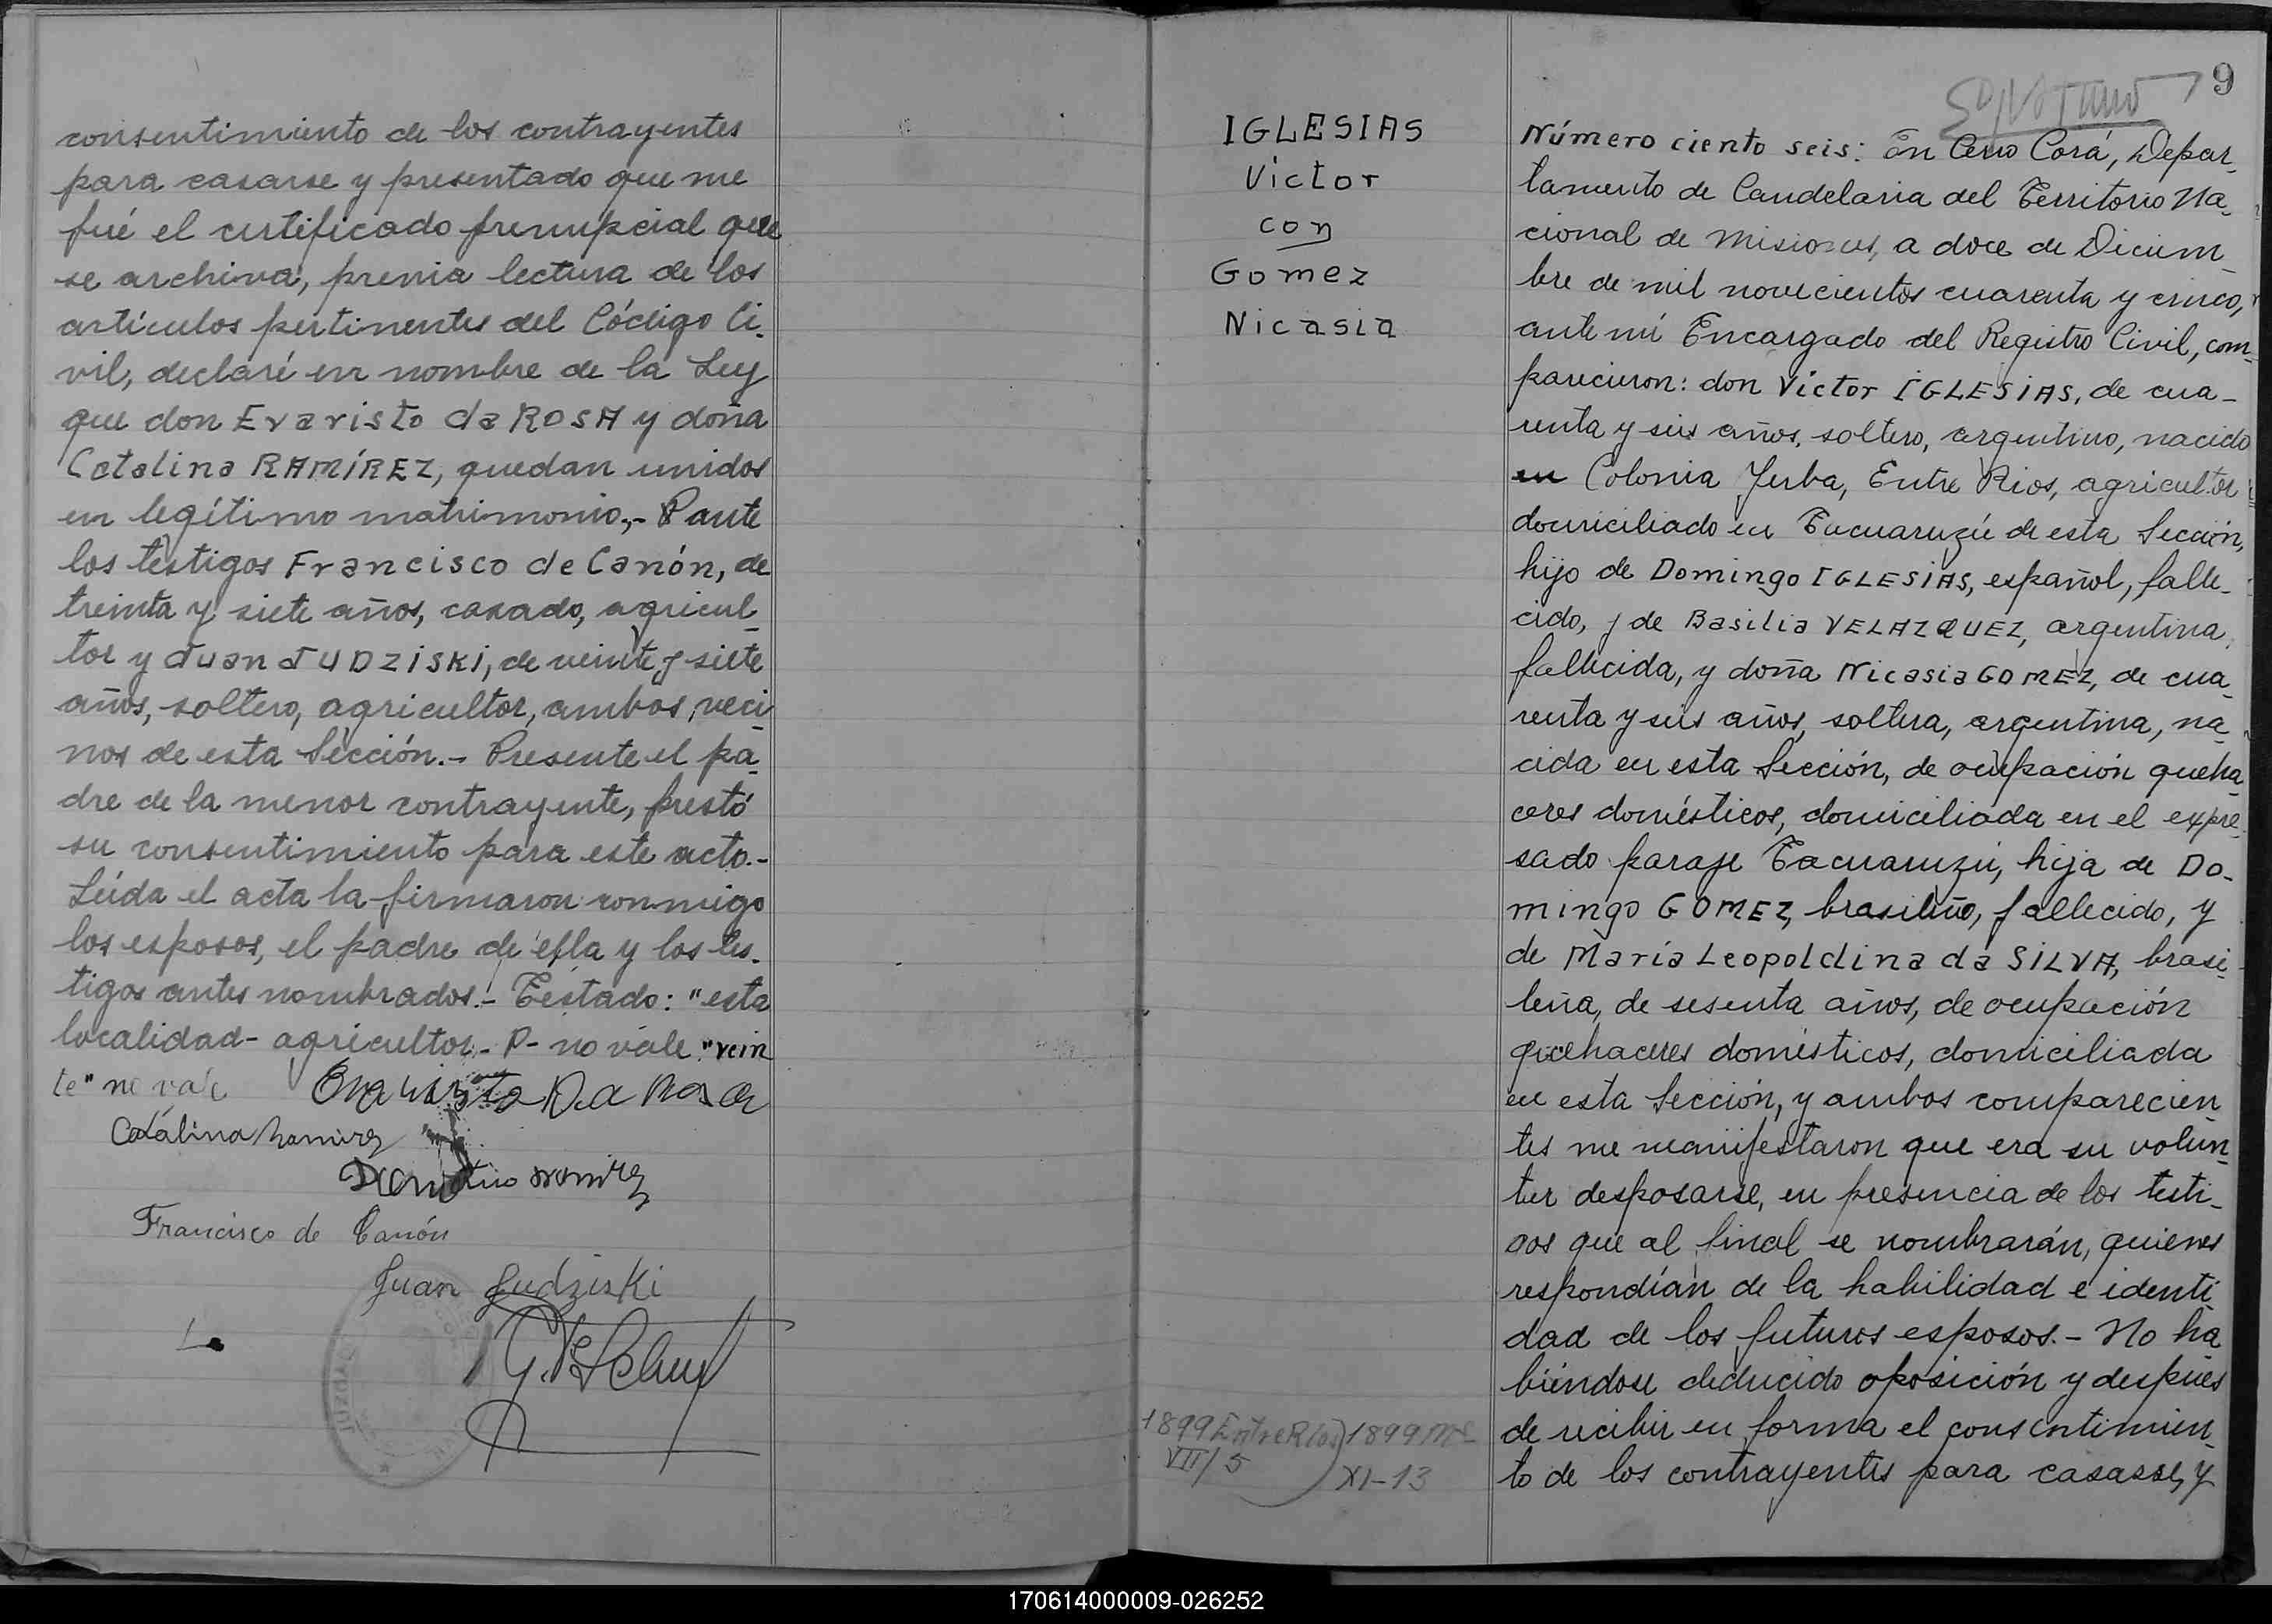 consentimiento de los contrayentes
para casarse y presentado que me
fué el certificado prenupcial que
se archiva, previa lectura de los
artículos pertinentes del Código Ci-
vil, declaré en nombre de la Ley
que don Evaristo da ROSA y doña
Catalina RAMÍREZ, quedan unidos
en legítimo matrimonio,- P ante
los testigos Francisco de Canón, de
treinta y siete años, casado, agricul-
tor y Juan JUDZISKI, de veinte y siete
años, soltero, agricultor, ambos veci-
nos de esta Sección.- Presente el pa-
dre de la menor contrayente, prestó
su consentimiento para este acto.-
Leída el acta la firmaron conmigo
los esposos, el padre de ella y los tes-
tigos antes nombrados.- Testado: "esta
localidad- agricultor- P- no vale "vein
te" no vale Evaristo Da Rosa
Catalina Ramirez
Ramirez
Francisco de Canón
Juan Judziski
IGLESIAS
Victor
con
Gomez
Nicasia
1899 Entre Rios) 1899 Ms
VII/5
XI-13
9
Número ciento seis: En Cerro Corá, Depar-
tamento de Candelaria del Territorio Na-
cional de Misiones, a doce de Diciem-
bre de mil novecientos cuarenta y cinco,
ante mí Encargado del Registro Civil, com-
parecieron: don Víctor IGLESIAS, de cua-
renta y seis años, soltero, argentino, nacido
en Colonia Yerba, Entre Rios, agricultor
domiciliado en Tacuaruzú de esta Sección,
hijo de Domingo IGLESIAS, español, falle-
cido, y de Basilia VELAZQUEZ, argentina,
fallecida, y doña Nicasia GOMEZ, de cua-
renta y seis años, soltera, argentina, na-
cida en esta Sección, de ocupación queha-
ceres domésticos, domiciliada en el expre-
sado paraje Tacuaruzú, hija de Do-
mingo GOMEZ, brasileño, fallecido, y
de María Leopoldina da SILVA, brasi-
leña, de sesenta años, de ocupación
quehaceres domésticos, domiciliada
en esta Sección, y ambos comparecien-
tes me manifestaron que era su volun-
tad desposarse, en presencia de los testi-
gos que al final se nombrarán, quienes
respondían de la habilidad e identi-
dad de los futuros esposos.- No ha
biéndose deducido oposición y después
de recibir en forma el consentimien-
to de los contrayentes para casarse, y
170614000009-026252